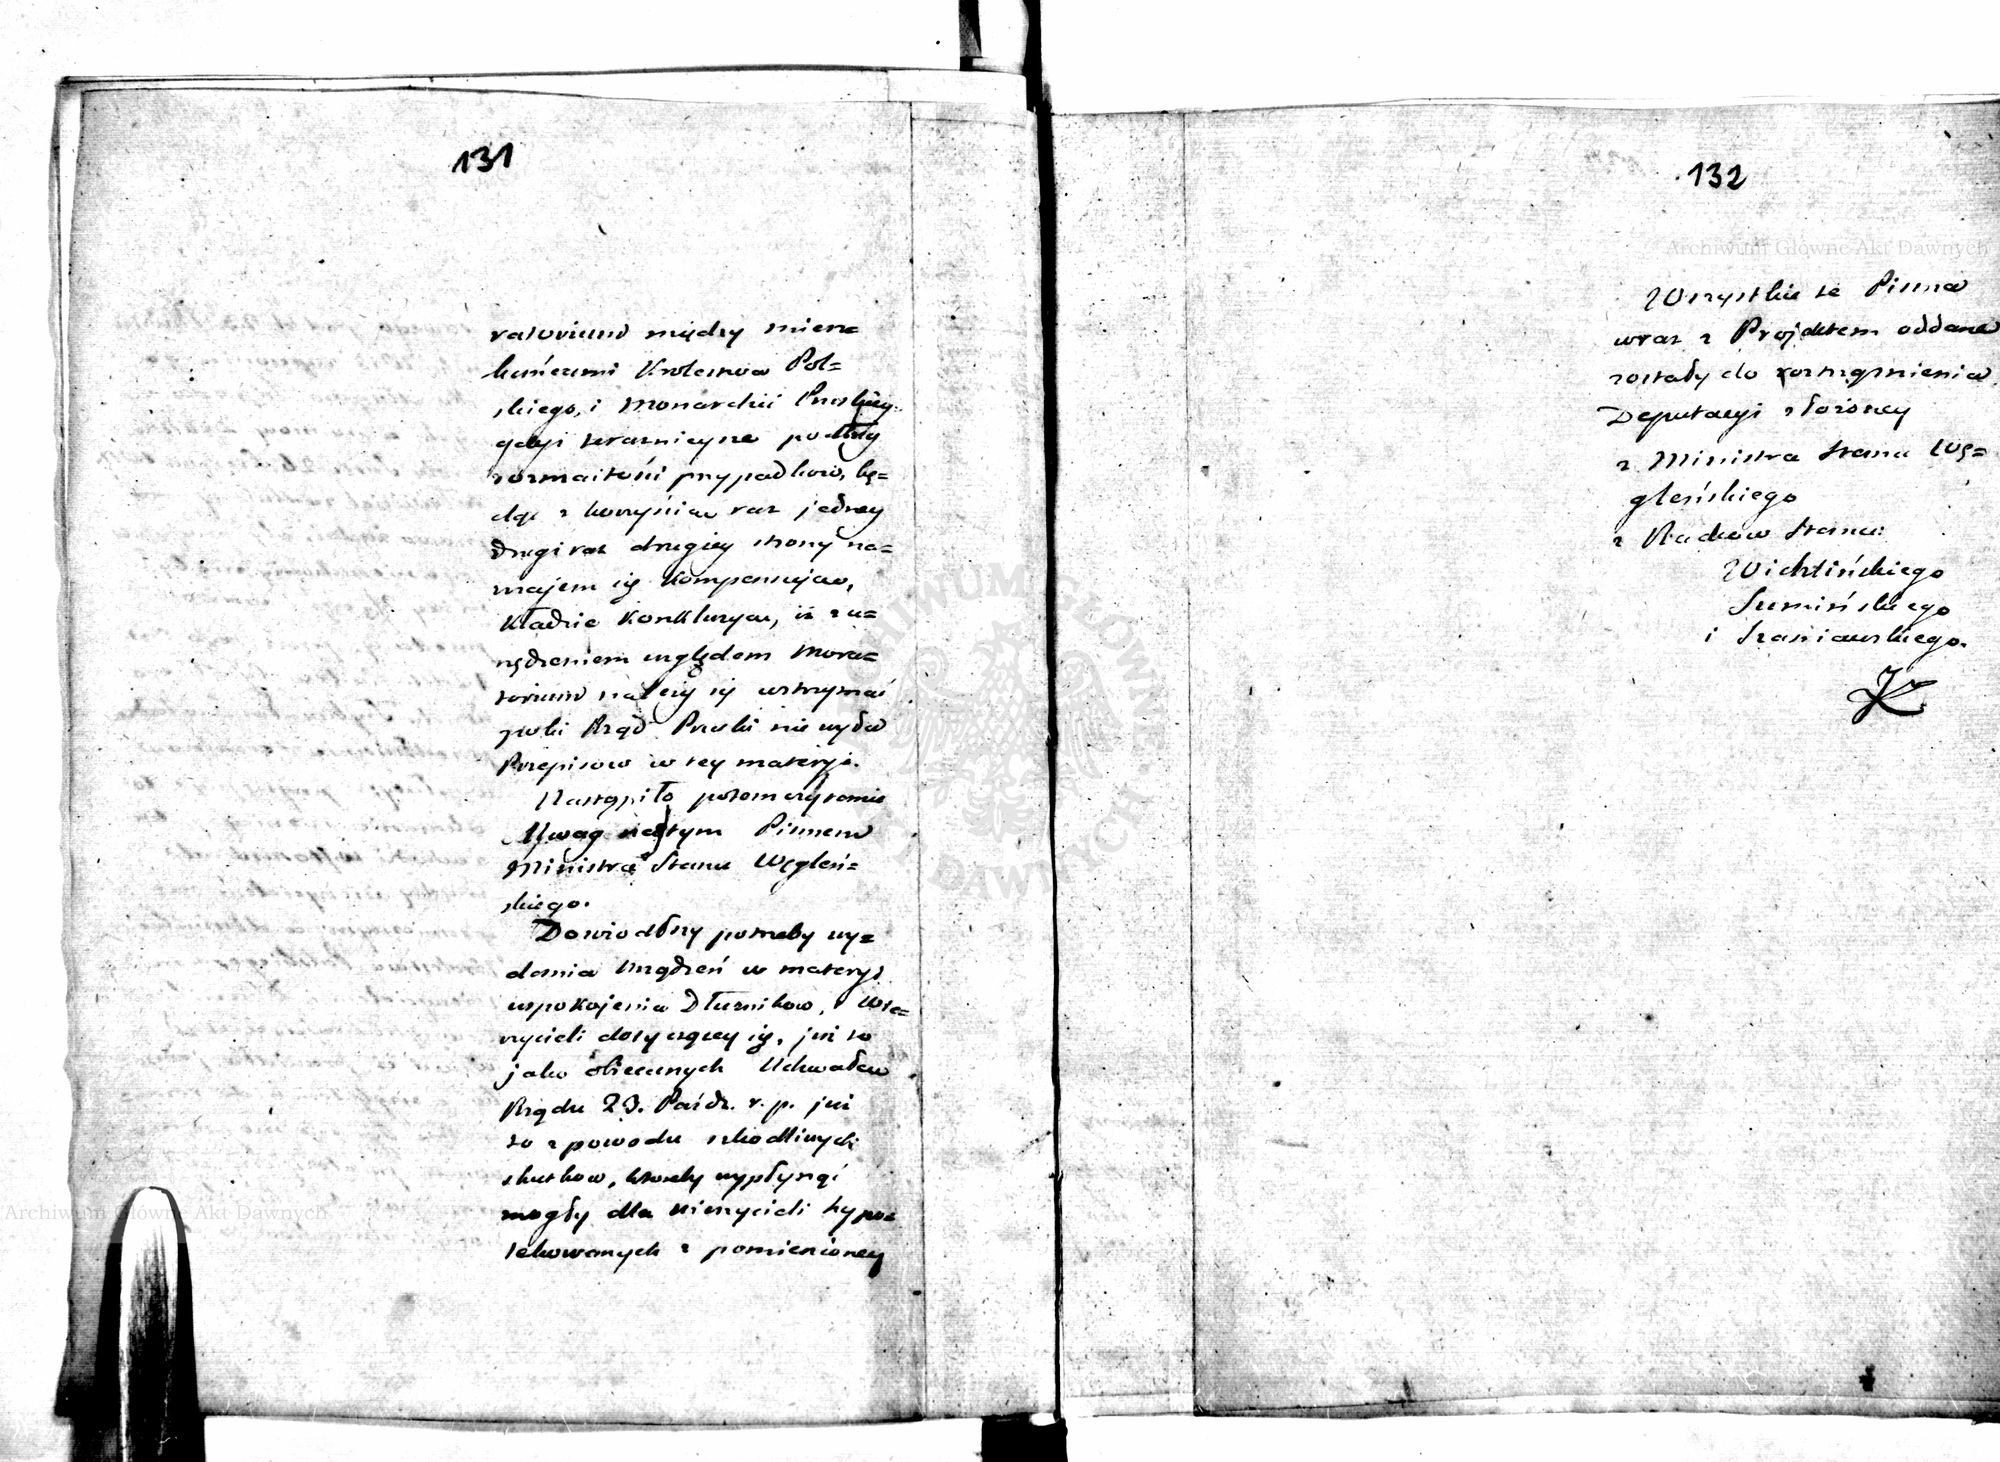 131
ratorium między miesz=
kańcami Krolestwa Pol=
skiego, i Monarchii Pruskiey
gdyż wzaiemne podług
rozmaitości przypadkow, bę=
dąc z korzyścią raz jedney
drugi raz drugiey strony na=
majem się kompensują,
Kładzie Konkluzyą, iż z u=
rządzeniem względem Mora=
torium należy się wstrzymać
poki Rząd Pruski nie wyda
Przepisow w tey materyi.
Nastąpiło potem czytanie
Uwag nad tym Pismem
Ministra Stanu Węgleń=
skiego.
Dowiodłszy potrzeby wy=
dania Urządzeń w materyi
uspokojenia Dłużnikow, i Wie=
rzycieli dotyczącey się, już to
jako obiecanych Uchwałą
Rządu 23. Paźdz. r. p. już
to z powodu szkodliwych
skutkow, ktoreby wypłynąć
mogły dla wierzycieli hypo=
tekowanych z pomienioney
132
Wszystkie te Pisma
wraz z Projektem oddane
zostały do roztrząśnienia
Deputacyi złożoney
z Ministra Stanu Wę=
gleńskiego
z Radcow Stanu:
Wichlińskiego
Sumińskiego
i Szaniawskiego.
K
Archiwum Główne Akt Dawnych
Archiwum Główne Akt Dawnych
ARCHIWUM GŁÓWNE AKT DAWNYCH